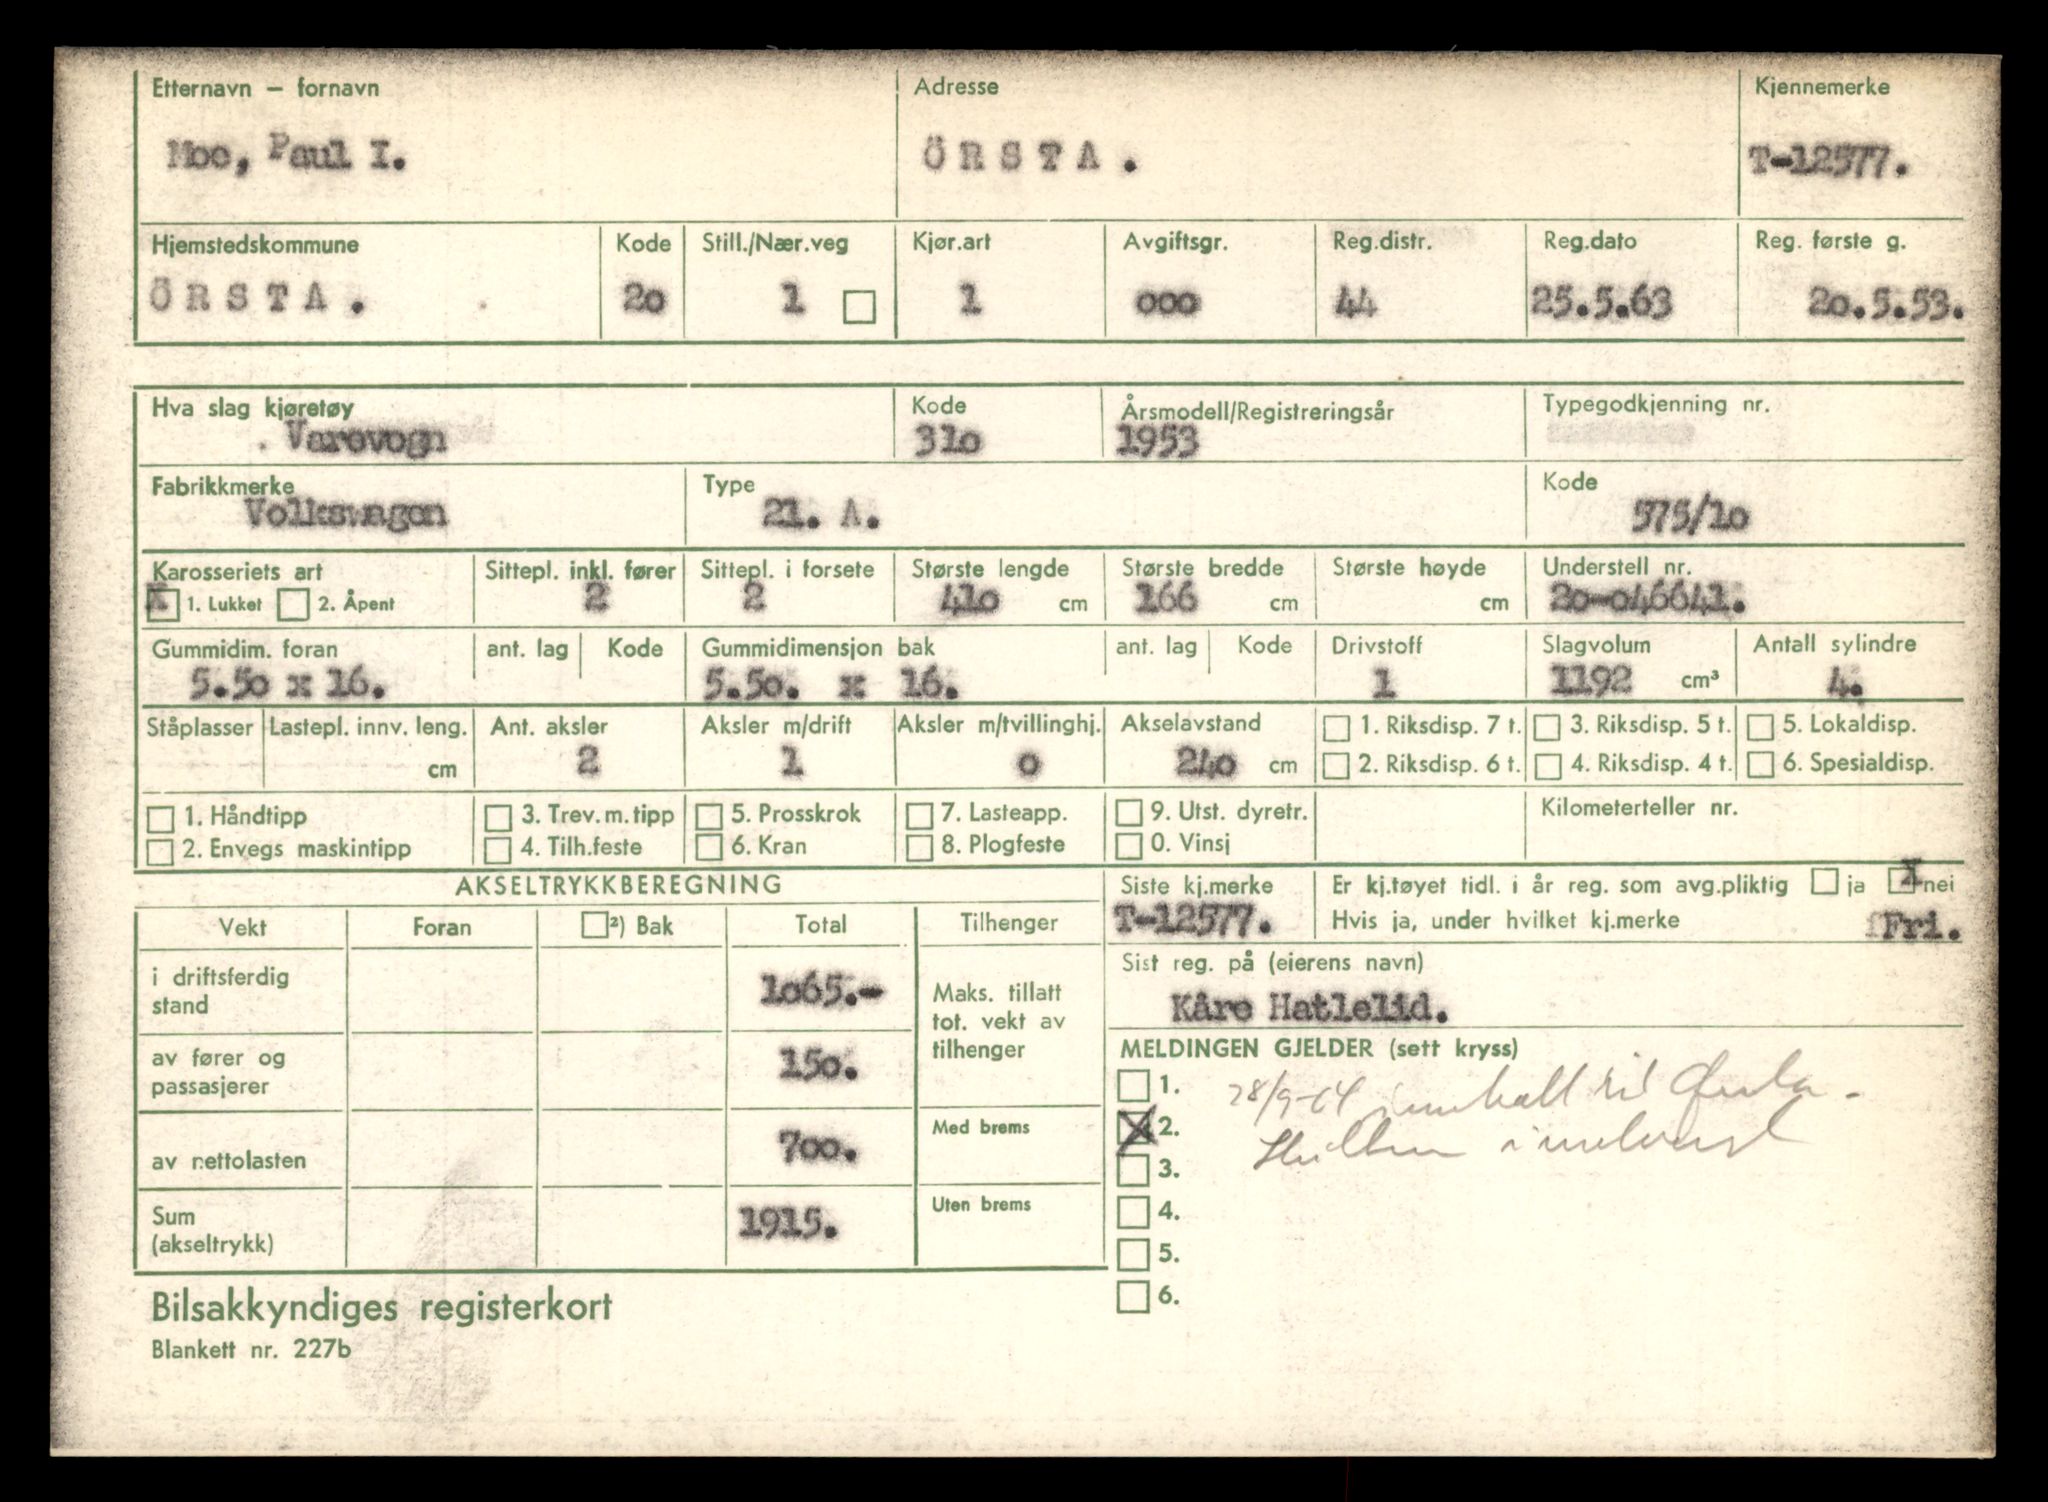 Etternavn – fornavn Adresse Kjennemerke
Moe, Paul I. ÖRSTA. T-12577.
Hjemstedskommune Kode Still./Nær.veg Kjør.art Avgiftsgr. Reg.distr. Reg.dato Reg. første g.
ÖRSTA. 20 1 1 000 44 25.5.63 20.5.53.
Hva slag kjøretøy Kode Årsmodell/Registreringsår Typegodkjenning nr.
Varevogn 310 1953
Fabrikkmerke Type Kode
Volkswagen 21. A. 575/10
Karosseriets art Sittepl. inkl. fører Sittepl. i forsete Største lengde Største bredde Største høyde Understell nr.
X 1. Lukket 2. Åpent 2 2 410 cm 166 cm cm 20-046641.
Gummidim. foran ant. lag Kode Gummidimensjon bak ant. lag Kode Drivstoff Slagvolum Antall sylindre
5.50 x 16. 5.50. x 16. 1 1192 cm³ 4.
Ståplasser Lastepl. innv. leng. Ant. aksler Aksler m/drift Aksler m/tvillinghj. Akselavstand 1. Riksdisp. 7 t. 3. Riksdisp. 5 t. 5. Lokaldisp.
cm 2 1 0 240 cm 2. Riksdisp. 6 t. 4. Riksdisp. 4 t. 6. Spesialdisp.
1. Håndtipp 3. Trev. m. tipp 5. Prosskrok 7. Lasteapp. 9. Utst. dyretr. Kilometerteller nr.
2. Envegs maskintipp 4. Tilh.feste 6. Kran 8. Plogfeste 0. Vinsj
AKSELTRYKKBEREGNING Siste kj.merke Er kj.tøyet tidl. i år reg. som avg.pliktig ja X nei
Vekt Foran ²) Bak Total Tilhenger T-12577. Hvis ja, under hvilket kj.merke Fri.
i driftsferdig stand 1065.- Maks. tillatt tot. vekt av tilhenger
Sist reg. på (eierens navn)
Kåre Hatlelid.
av fører og passasjerer 150.
MELDINGEN GJELDER (sett kryss)
1. 28/9-64 til Ørsta -
av nettolasten 700. Med brems
X 2.
3.
Sum (akseltrykk) 1915. Uten brems
4.
5.
6.
Bilsakkyndiges registerkort
Blankett nr. 227b